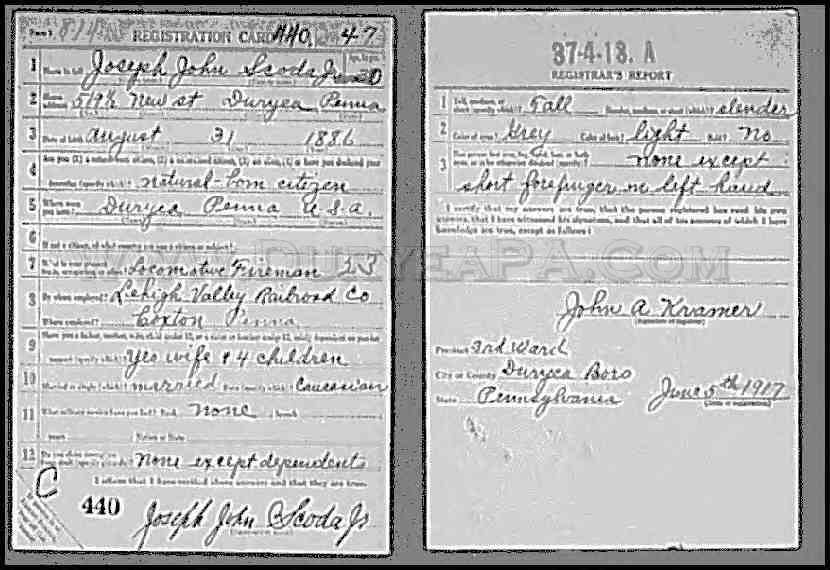 Form 1 814 REGISTRATION CARD 440 No. 47
1 Name in full Joseph John Scoda Jr 30 Age, in yrs.
2 Home address 519½ New st Duryea Penna
3 Date of birth August 31 1886
4 Are you (1) a natural-born citizen, (2) a naturalized citizen, (3) an alien, (4) or have you declared your
intention (specify which)? natural-born citizen
5 Where were you born? Duryea Penna U.S.A.
6 If not a citizen, of what country are you a citizen or subject?
7 What is your present trade, occupation, or office? Locomotive Fireman 23
8 By whom employed? Lehigh Valley Railroad Co
Where employed? Coxton Penna
9 Have you a father, mother, wife, child under 12, or a sister or brother under 12, solely dependent on you for
support (specify which)? Yes wife + 4 children
10 Married or single (which)? married Race (specify which)? Caucasian
11 What military service have you had? Rank none Branch
years Nation or State
12 Do you claim exemption from draft (specify grounds)? None except dependents
I affirm that I have verified above answers and that they are true.
C 440
Joseph John Scoda Jr
37-4-13. A
REGISTRAR'S REPORT
1 Tall, medium, or short (specify which)? Tall Slender, medium, or stout (which)? slender
2 Color of eyes? Grey Color of hair? light Bald? No
3 Has person lost arm, leg, hand, foot, or both
eyes, or is he otherwise disabled (specify)? none except
short forefinger on left hand
I certify that my answers are true, that the person registered has read his own
answers, that I have witnessed his signature, and that all of his answers of which I have
knowledge are true, except as follows:
www.DuryeaPA.com
John A Kramer
(Signature of registrar)
Precinct 3rd Ward
City or County Duryea Boro
State Pennsylvania June 5th 1917
(Date of registration)